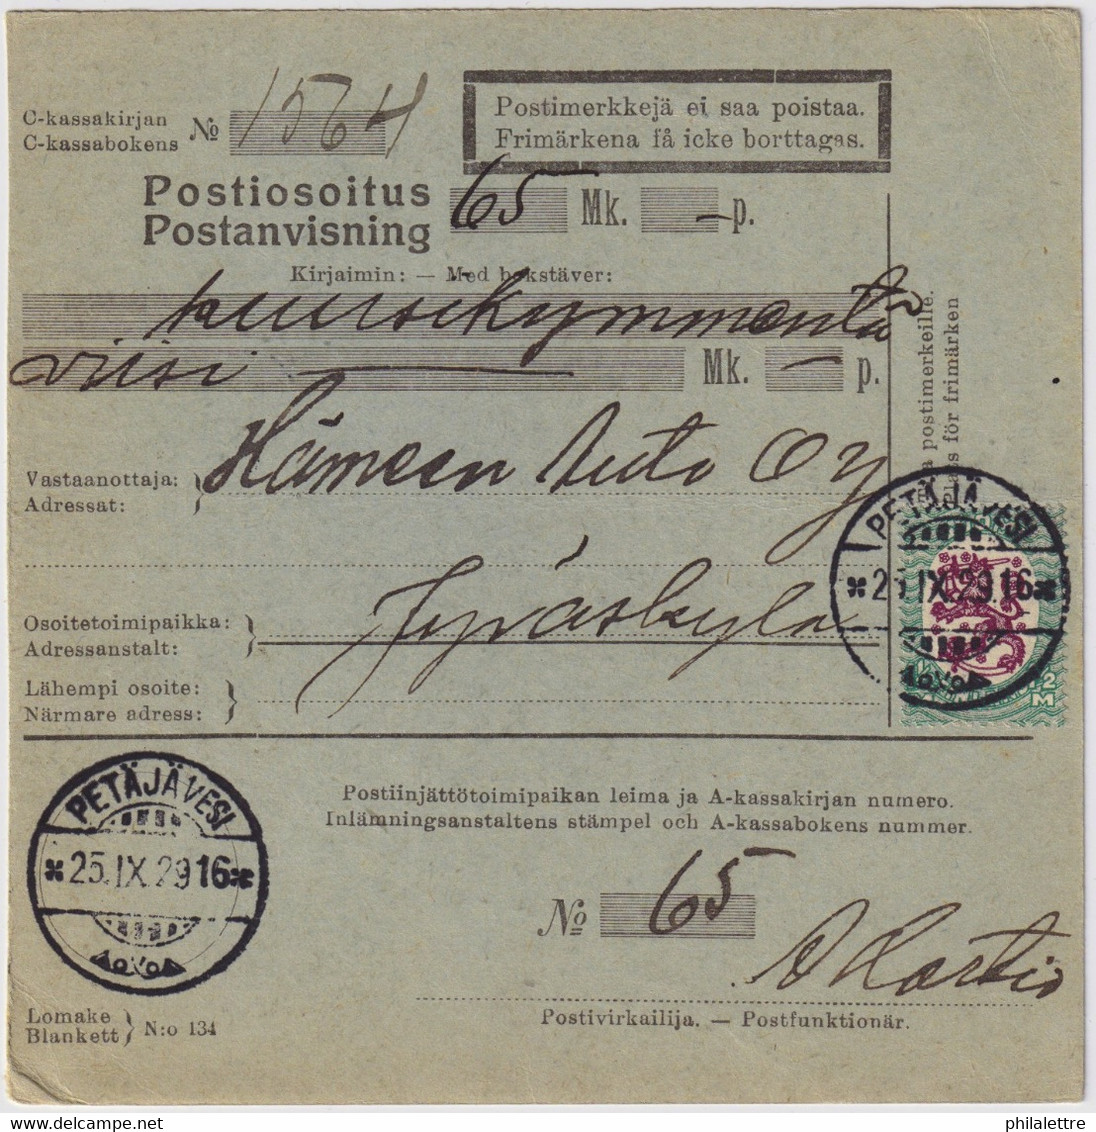 C-kassakirjan
C-kassabokens
№ 1564
Postimerkkejä ei saa poistaa.
Frimärkena få icke borttagas.
Postiosoitus
Postanvisning
65 Mk. — p.
Kirjaimin: — Med bokstäver:
kuusikymmentä
viisi — Mk. — p.
a postimerkeille.
s för frimärken
Vastaanottaja:
Adressat:
Hämeen Auto OY
Osoitetoimipaikka:
Adressanstalt:
Jyväskylä
Lähempi osoite:
Närmare adress:
PETÄJÄVESI
25.IX.29.16
2 M
PETÄJÄVESI
25.IX.29 16
Postiinjättötoimipaikan leima ja A-kassakirjan numero.
Inlämningsanstaltens stämpel och A-kassabokens nummer.
№ 65
Postivirkailija. — Postfunktionär.
Lomake
Blankett
N:o 134
philalettre